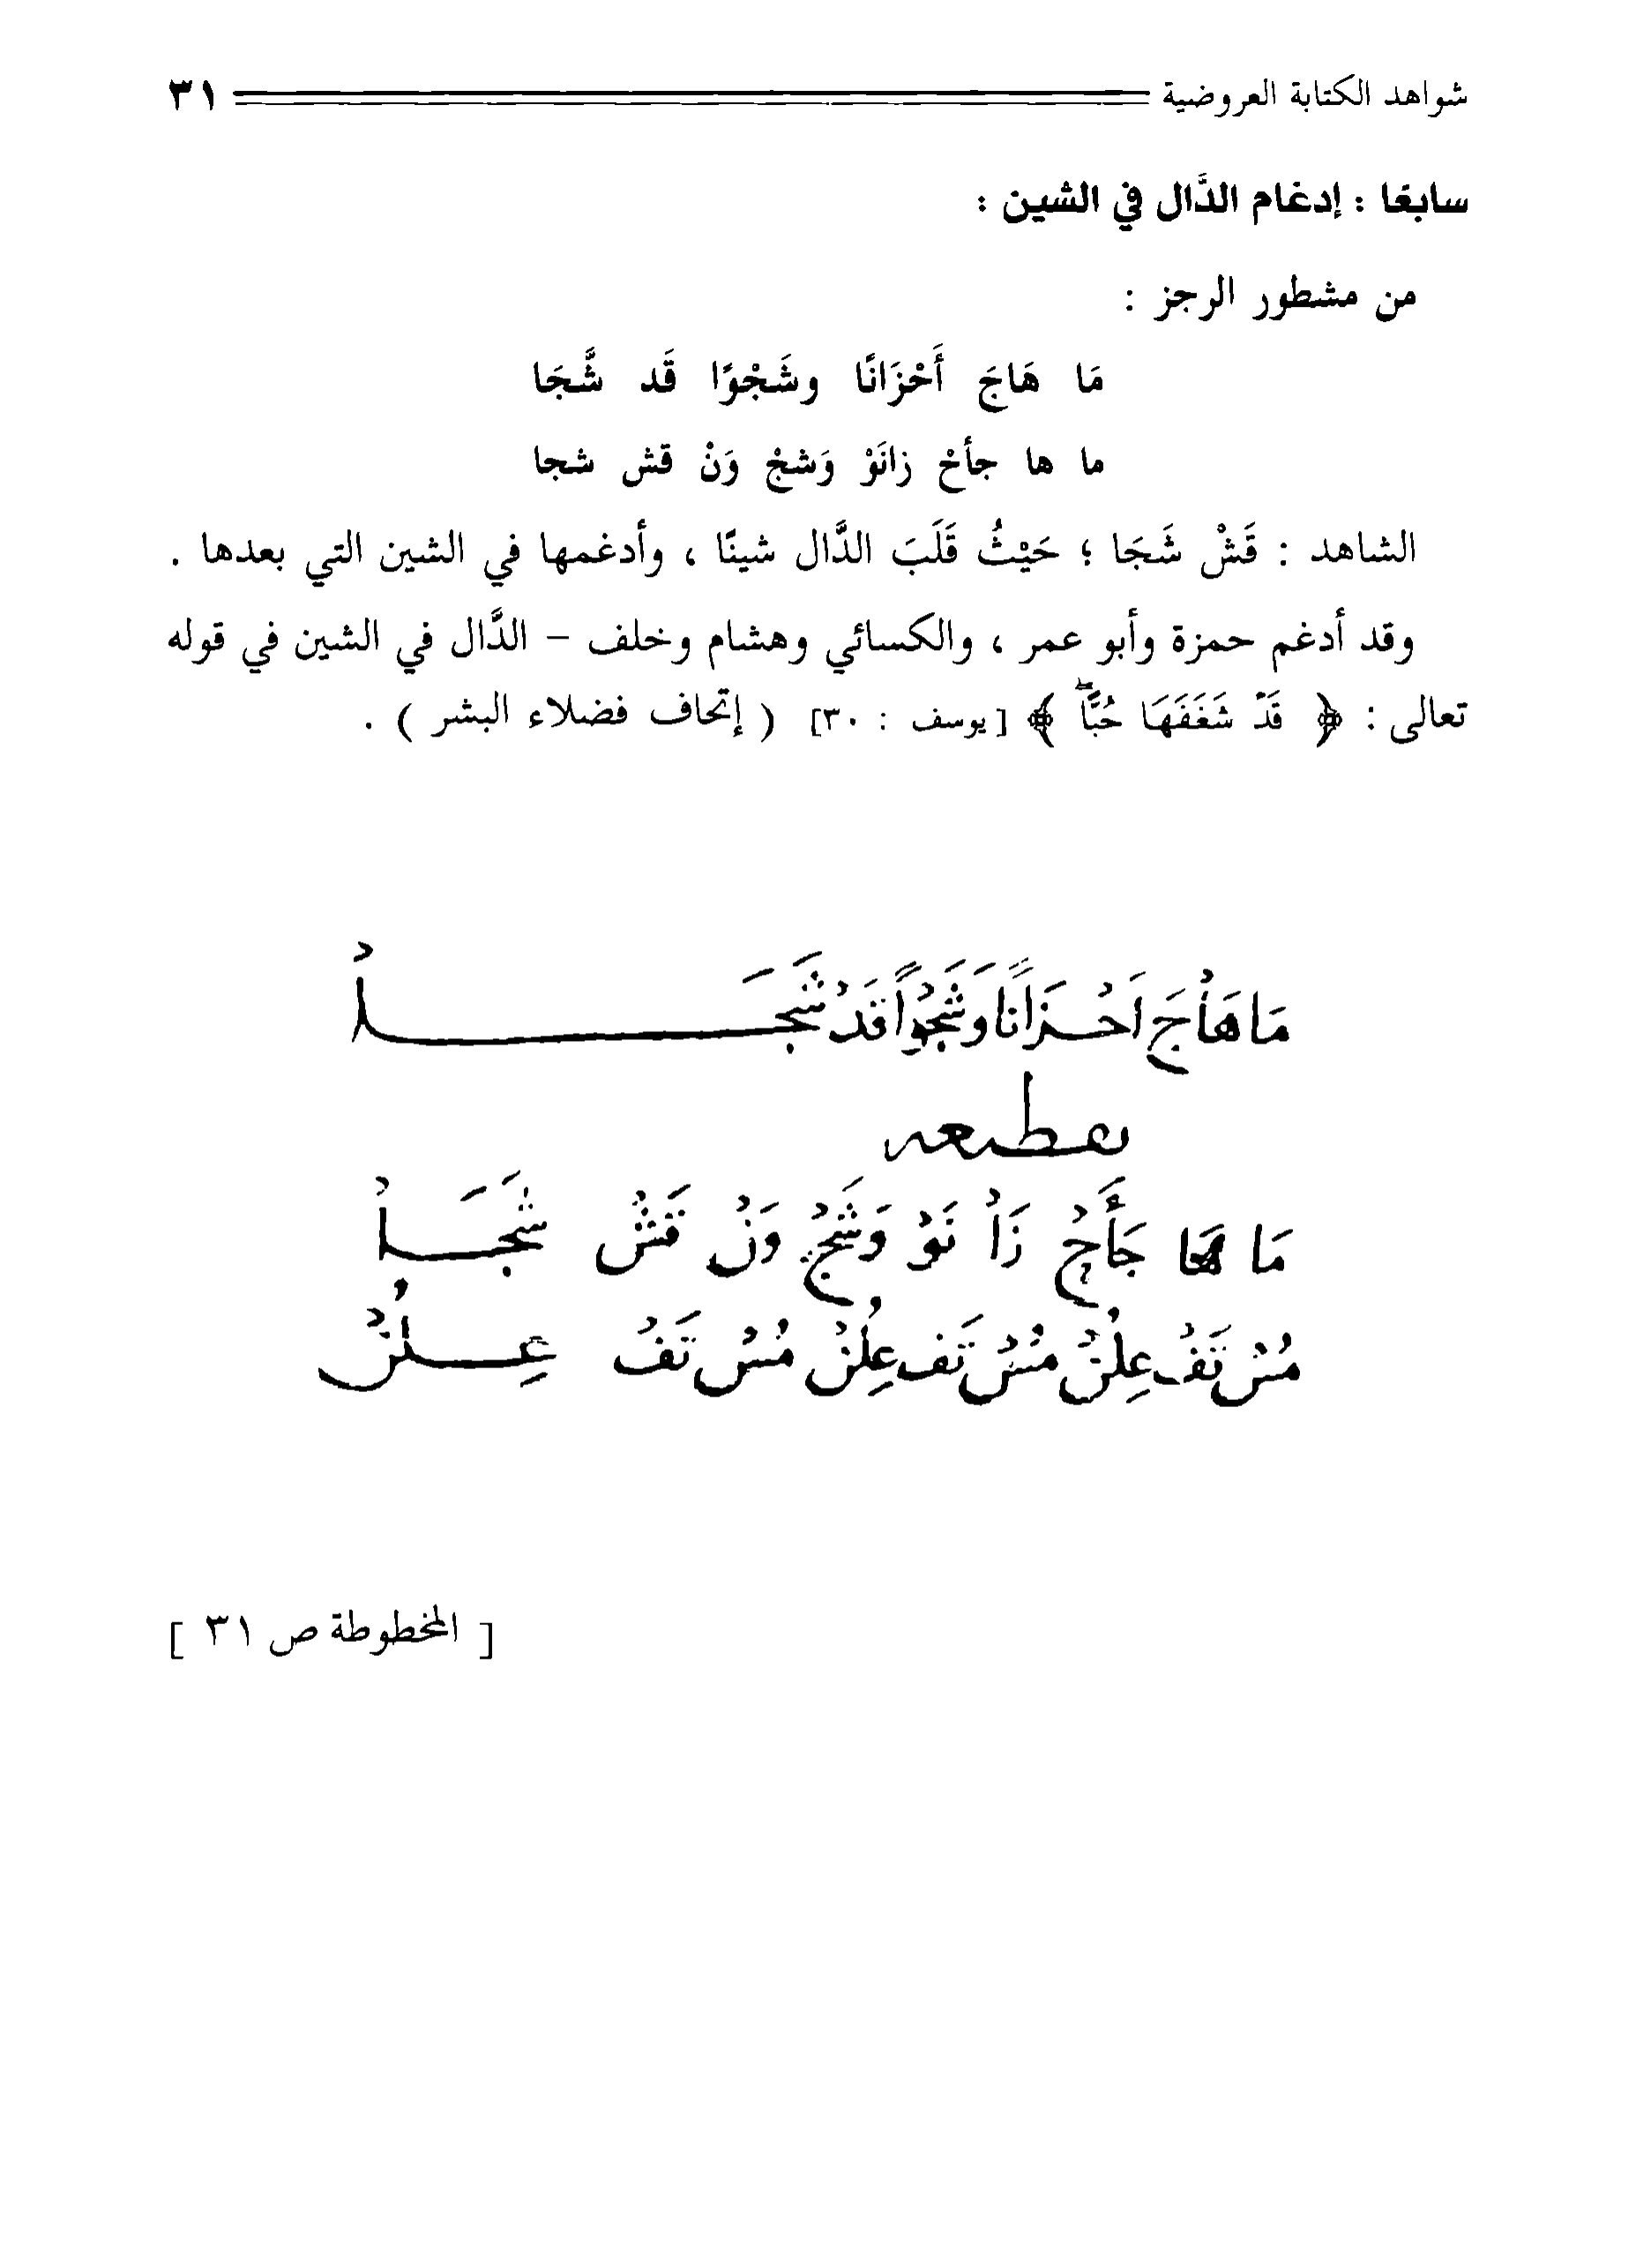 شواهد الكتابة العروضية ٣١
سابعًا : إدغام الدَّال في الشين :
من مشطور الرجز :
مَا هَاجَ أَحْزَانًا وشَجْوًا قَد شَّجَا
ما ها جأحْ زانَوْ وَشجْ وَنْ قش شجا
الشاهد : قَشْ شَجَا ؛ حَيْثُ قَلَبَ الدَّال شينًا ، وأدغمها في الشين التي بعدها .
وقد أدغم حمزة وأبو عمر ، والكسائي وهشام وخلف – الدَّال في الشين في قوله
تعالى : ﴿ قَدْ شَغَفَهَا حُبًّا ۖ ﴾ [يوسف : ٣٠] ( إتحاف فضلاء البشر ) .
مَا هَاْجَ اَحْزَانًا وَشَجْوًا قَدْ شَجَاْ
تقطيعه
مَا هَا جَأَحْ زَاْ نَوْ وَشَجْ وَنْ قَشْ شَجَاْ
مُسْ تَفْ عِلُنْ مُسْ تَفْ عِلُنْ مُسْ تَفْ عِلُنْ
[ المخطوطة ص ٣١ ]